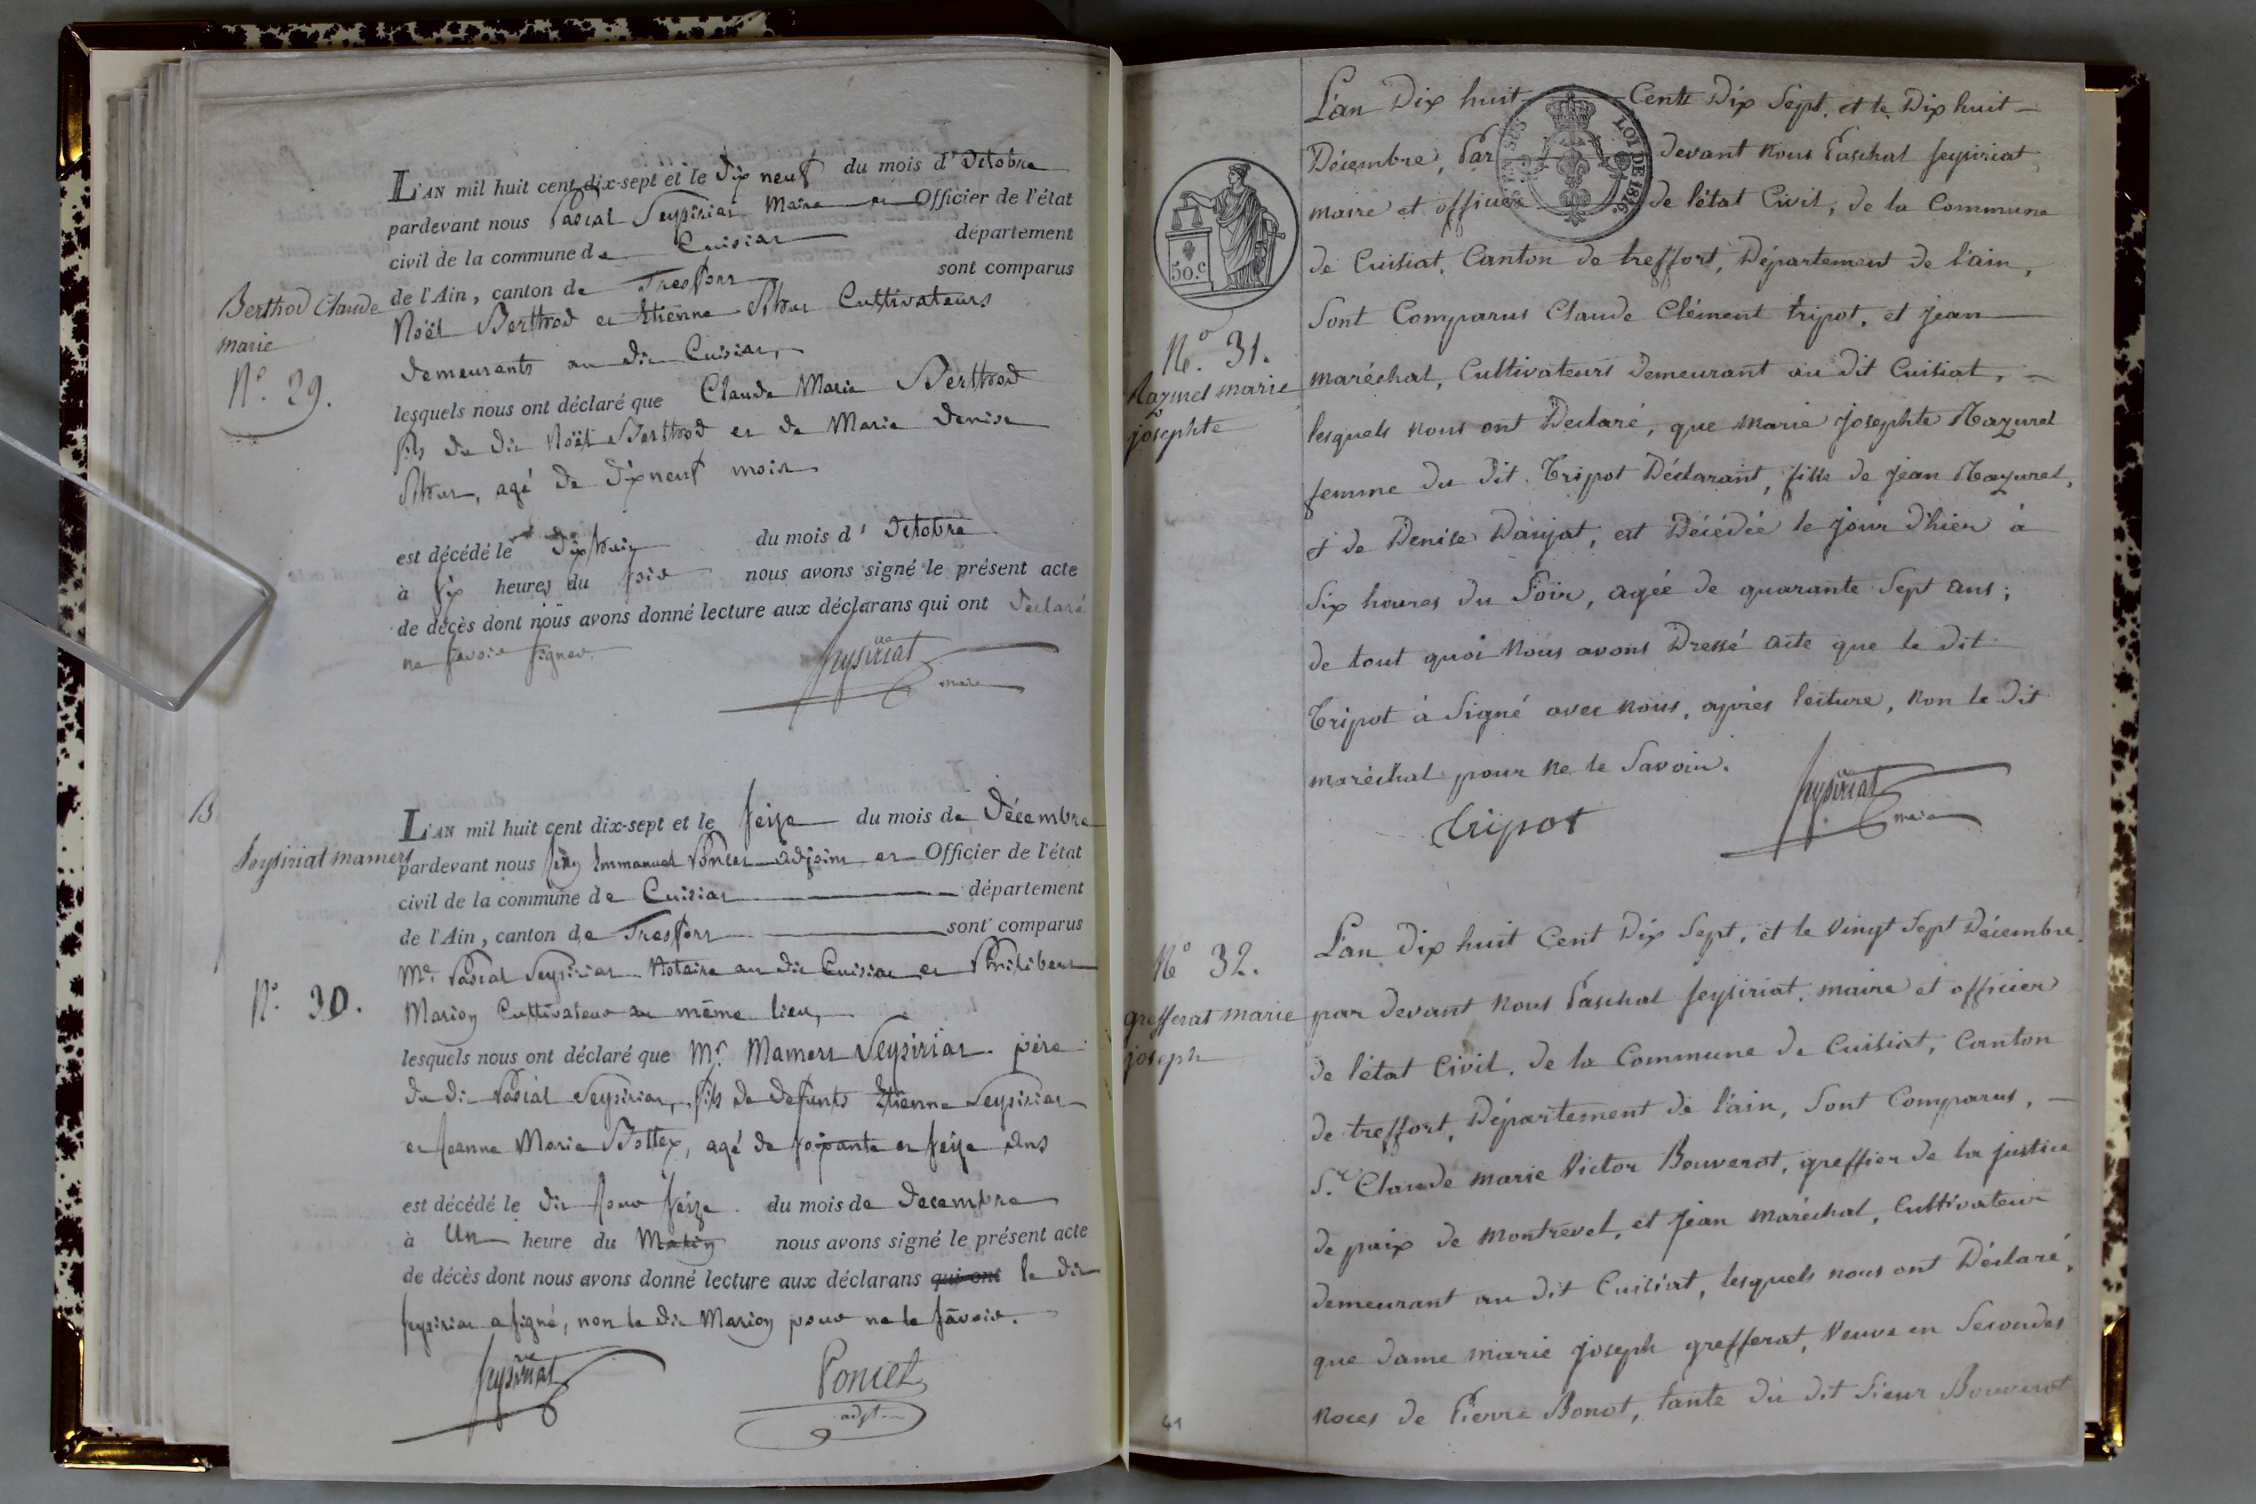 Berthod Claude
marie
N.° 29.
L'AN mil huit cent dix-sept et le dix neuf du mois d'Octobre
pardevant nous Pascal Seysiriat Maire et Officier de l'état
civil de la commune de Cuisiat département
de l'Ain, canton de Treffort sont comparus
Noël Berthod et Etienne Cultivateurs
demeurants au dit Cuisiat,
lesquels nous ont déclaré que Claude Marie Berthod
fils du dit Noël Berthod et de Marie Denise
agé de dixneuf mois
est décédé le dixhuit du mois d'Octobre
à six heures du soir nous avons signé le présent acte
de décès dont nous avons donné lecture aux déclarans qui ont déclaré
ne savoir signer.
Seysiriat
maire
B
Seysiriat mamert
N.° 30.
L'AN mil huit cent dix-sept et le seize du mois de Décembre
pardevant nous Emmanuel Poncet adjoint et Officier de l'état
civil de la commune de Cuisiat département
de l'Ain, canton de Treffort sont comparus
Mr. Pascal Seysiriat Notaire au dit Cuisiat et Philibert
Marion Cultivateur au même lieu,
lesquels nous ont déclaré que Mr. Mamert Seysiriat père
du dit Pascal Seysiriat, fils de defunts Etienne Seysiriat
et Jeanne Marie Bottex, agé de soixante et seize ans
est décédé le dit jour seize du mois de decembre
à Un heure du Matin nous avons signé le présent acte
de décès dont nous avons donné lecture aux déclarans qui ont le dit
Seysiriat a signé, non le dit Marion pour ne le savoir.
Seysiriat
Poncet
adjt
50.c
LOI DE 1816.
N.° 31.
Mazuret marie
josephte
L'an Dix huit Cent Dix Sept, et le Dix huit
Décembre, Par devant nous Paschal Seysiriat
maire et officier de l'état Civil, de la Commune
de Cuisiat, Canton de treffort, Département de l'ain,
Sont Comparus Claude Clément tripot, et jean
maréchal, Cultivateurs Demeurant au dit Cuisiat,
lesquels nous ont Declaré, que marie josephte Mazuret
femme du dit Tripot Déclarant, fille de jean Mazuret,
et de Denise Daujat, est Décédée le jour d'hier à
Six heures du Soir, agée de quarante Sept ans;
de tout quoi Nous avons Dressé acte que le dit
Tripot à Signé avec nous, après lecture, non le dit
maréchal pour ne le Savoir.
tripot
Seysiriat
maire
N° 32.
grefferat marie
joseph
L'an Dix huit Cent Dix Sept, et le vingt Sept Décembre,
par devant nous Paschal Seysiriat, maire et officier
de l'état Civil, de la Commune de Cuisiat, Canton
de treffort, Département de l'ain, Sont Comparus,
S.r Claude marie Victor Bouverat, greffier de la justice
de paix de montrevel, et jean maréchal, Cultivateur
demeurant au dit Cuisiat, lesquels nous ont Déclaré,
que dame marie joseph grefferat, veuve en Secondes
noces de Pierre Bonot, tante du dit Sieur Bouverat
41